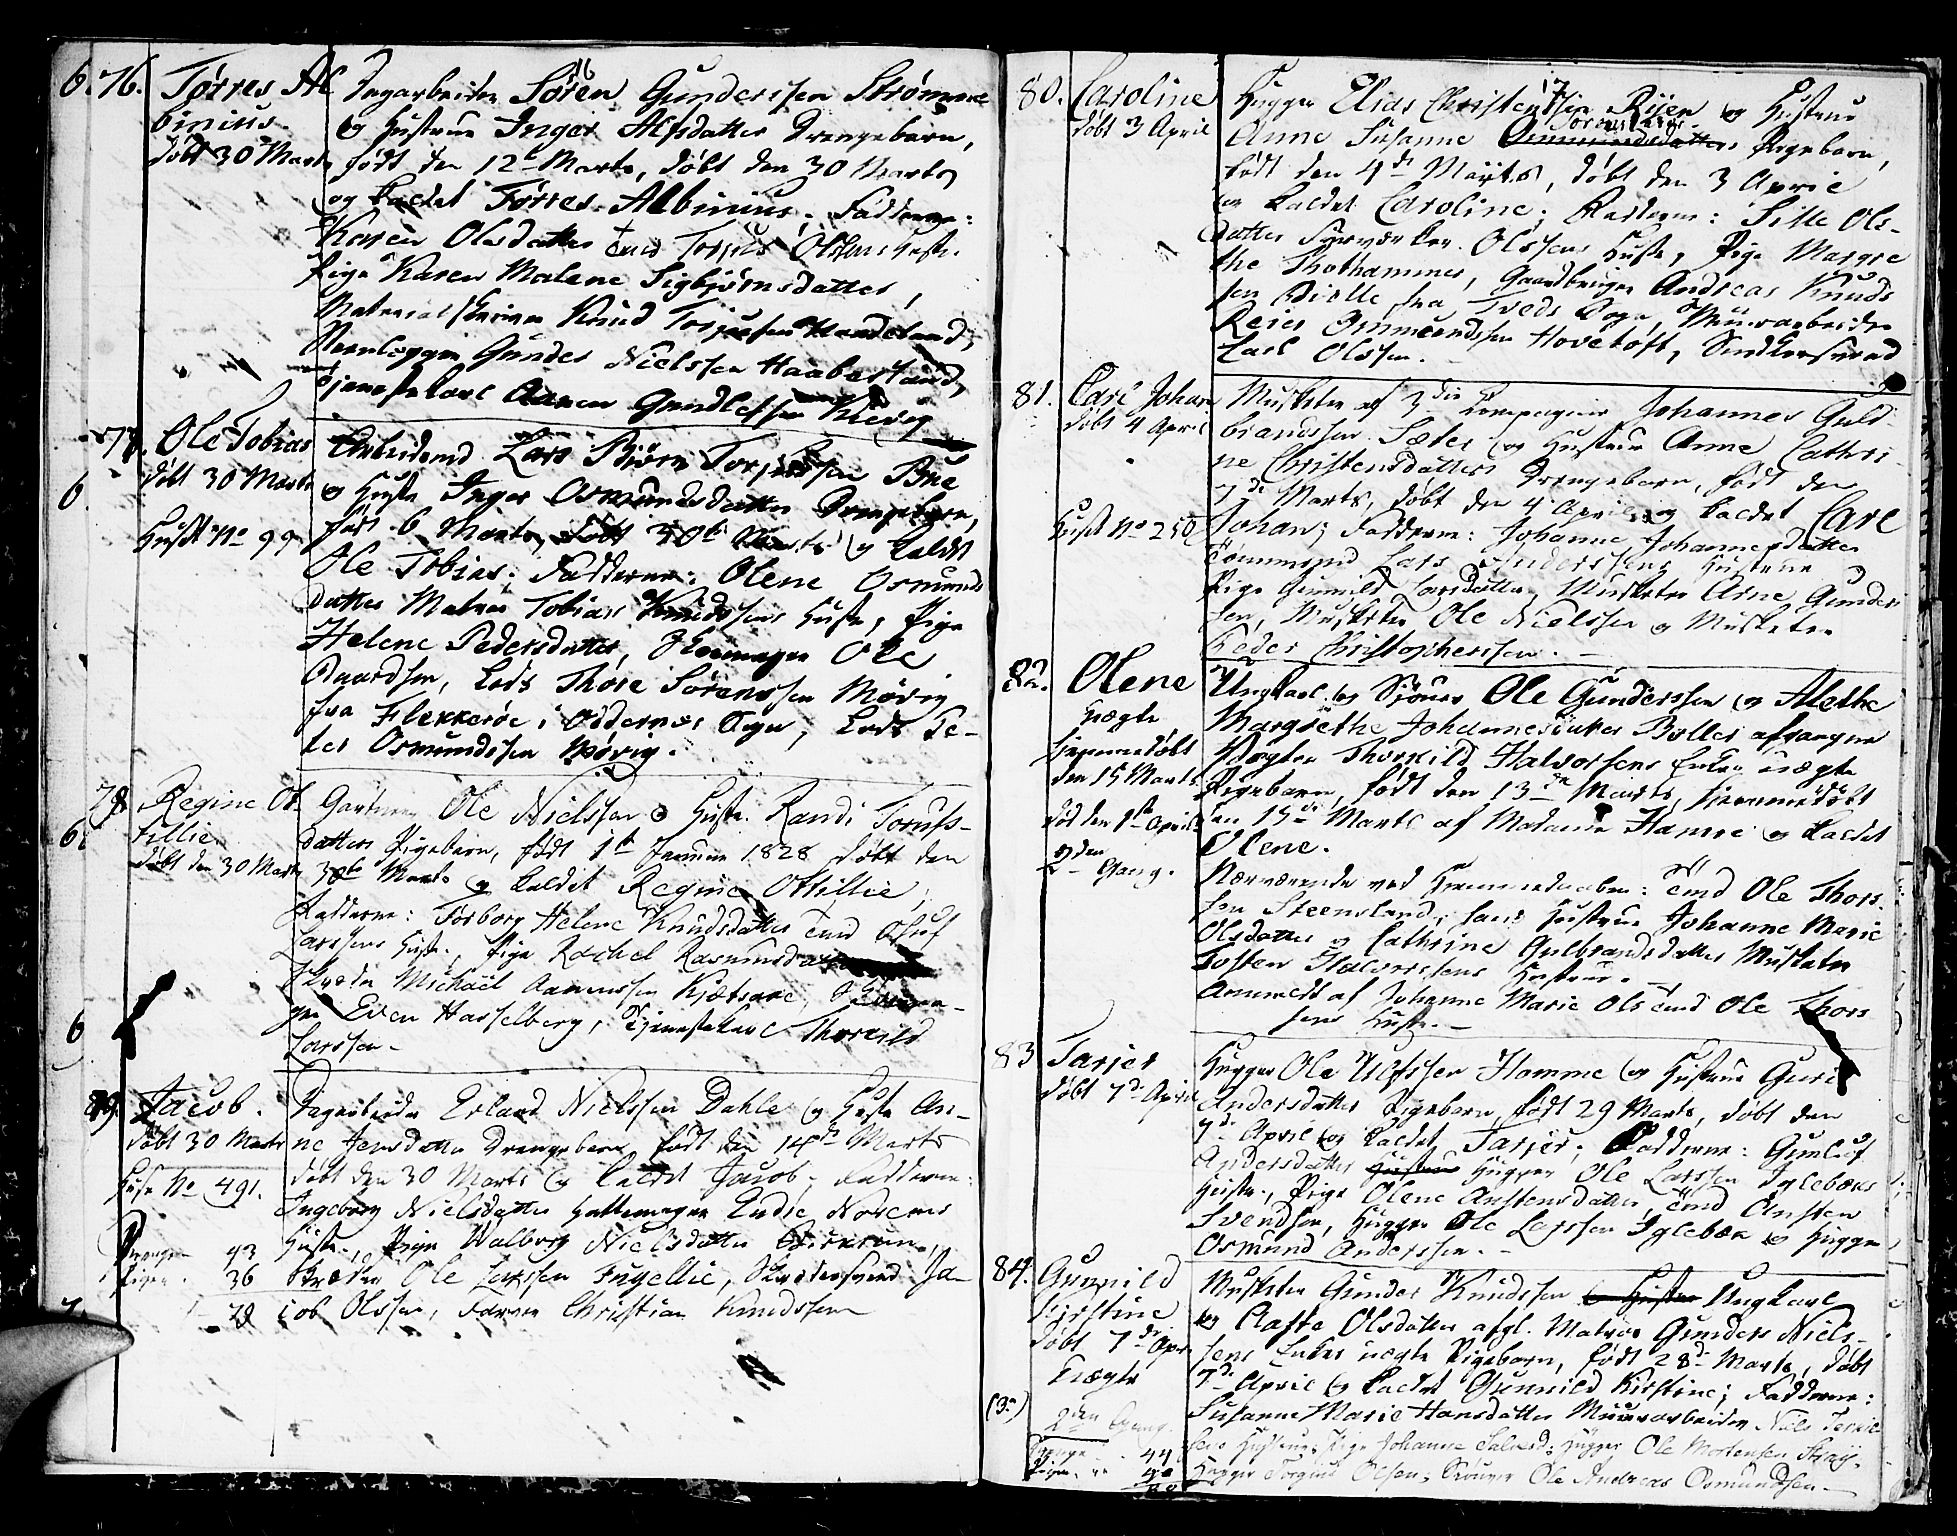 16
6. 76. Tørres Al
binius
døbt 30 Marts
Dagarbeider Søren Gunderssen Strømme
og Hustrue Inger Alfsdatter Drengebarn,
født den 12te Marts, døbt den 30 Marts
og kaldet Tørres Albinius; Fadderne:
Karen Olesdatter Tmd Torjus Olssens Hust.
Pige Karen Malene Sigbjørnsdatter,
Materialskriver Knud Torjussen Haaeland,
Gunder Nielssen Haabesland,
Tjenestekarl Aanen Gundlefsen
77. Ole Tobias
døbt 30 Marts
6.
Huset No 99
Arbeidsmd Lars Bjørn Torjussen Bue
og Hustr Inger Osmundsdatter Drengebarn,
født 6 Marts, døbt 30te Marts og kaldt
Ole Tobias; Fadderne: Olene Osmunds
datter Matros Tobias Knudssens Hustr, Pige
Helene Pedersdatter, Skomager Ole
Baardsen, Lods Thore Sørenssen Møvig
fra Flekkerøe i Oddernes Sogn, Lods Pe-
ter Osmundssen Møvig.
78 Regine Ot-
tillie
døbt den 30 Marts
6.
Gartner Ole Nielssen & Hustr. Randi
datters Pigebarn, født 1te Januar 1828 døbt den
30te Marts og kaldet Regine Ottillie;
Fadderne: Torborg Helene Knudsdatter Tmd Oluf
Larssens Hustr., Pige Rachel Rasmusdatter
Michael Aanenssen Kjætsaae,
Even Hasselberg, Tjenestekarl Thorkild
Larssen.
6
79. Jacob.
døbt 30 Marts
Huse No 491.
Dagarbeider Erland Nielssen Dahle og Hustr An-
ne Jensdatter Drengebarn født den 14de Marts
døbt den 30 Marts og kaldt Jacob; Fadderne:
Ingeborg Nielsdatter Hattemager Endre Norems
Hustr., Pige Walborg Nielsdatter
Ole Larssen, Skrædersvend Ja-
cob Olssen, Farver Christian Knudssen
Drenge 43
Piger. 36
79
7.
17
80. Caroline
døbt 3 April
Hugger Elias Christenssen Risen og Hustrue
Anne Susanne Gunmundsdatters Pigebarn,
født den 4de Marts, døbt den 3 April
og kaldet Caroline; Fadderne: Sille Ols-
datter Olssens Hustr, Pige Margre
the Thorhammer, Gaardbruger Andreas Knuds
sen fra Tveds Sogn, Muurarbeider
Reier Ommundssen Hovetoft,
Carl Olssen.
81. Carl Johan
døbt 4 April
Huset No 250
Musketer af 3die Compagnie Johannes Guld-
brandssen Sæter og Hustrue Anne Cathri-
ne Christensdatters Drengebarn, født den
7de Marts, døbt den 4 April og kaldet Carl
Johan; Fadderne: Johanne Johannesdatter
Tømmermd Lars Anderssens Hustrue
Pige Gunnild Larsdatter, Musketer Arne Gunder
sen, Musketer Ole Nielssen og Musketer
Peder Christopherssen.
82. Olene
uægte
hjemmedøbt
den 15 Marts
død den 1te April
2den Gang.
Ungkarl og Sjømand Ole Gunderssen og Alethe
Margrethe Johannesdatter Boller afgangne
Thorkild Halvorsens Enkes uægte
Pigebarn, født den 13de Marts, hjemmedøbt
den 15de Marts af Madame Hamre og kaldet
Olene.
Nærværende ved Hjemmedaaben: Tmd Ole Thors
sen Steensland, hans Hustrue Johanne Marie
Olsdatter og Cathrine Gulbrandsdatter Musketer
Tosten Halvorssens Hustrue.
Anmeldt af Johanne Marie Ols Tmd Ole Thors
sens Hustr.
83 Tarjer
døbt 7de April
Hugger Ole Ulfssen Homme og Hustrue Guri
Andersdatters Pigebarn, født 29 Marts, døbt den
7de April og kaldet Tarjer; Fadderne: Gunluf
Andersdatter Hustrue Hugger Ole Larssen Iglebæks
Hustr., Pige Olene Anstensdatter, Tmd Ansten
Svendsen, Hugger Ole Larssen Iglebæk og Hugger
Osmund Anderssen.
84. Gunnild
Kirstine
døbt 7de Apr
Uægte
(3.)
2den Gang.
Musketer Gunder Knudssen og Hustrue Ungkarl
og Olsdatter afgl. Matros Gunders Niels-
sens Enkes uægte Pigebarn, født 28de Marts, døbt
7de April og kaldet Gunnild Kirstine; Fadderne:
Susanne Marie Hansdatter Muurarbeider Niels Terkel
sens Hustrue, Pige Johanne Salvesd; Hugger Ole Mortensen
Hugger Torgius Olsen; Ole Andreas Osmundsen.
Drenge 44
Piger 40